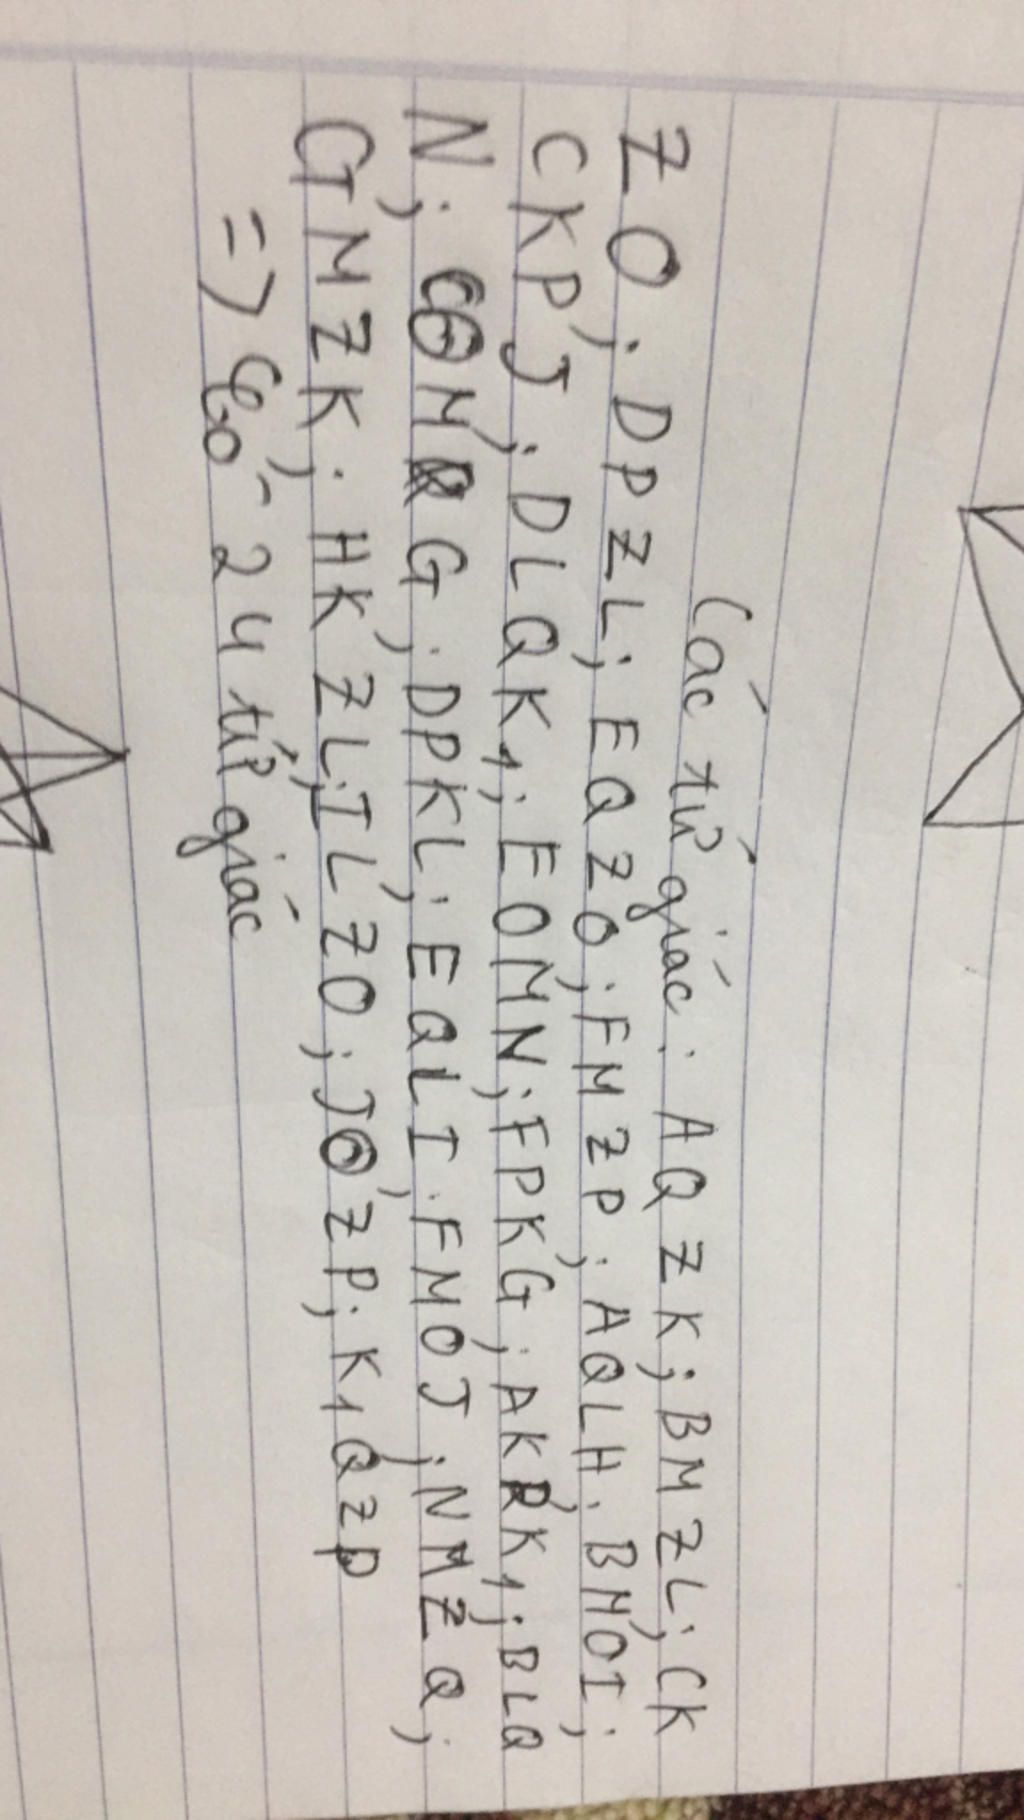 Các tứ giác: AQZK; BMZL; CK
ZO; DPZL; EQZO; FMZP; AQLH; BMOI;
CKPJ; DLQK₁; EOMN; FPKG; AKPK₁; BLQ
N; COMG; DPKL; EQLI; FMOJ; NMZQ;
GMZK; HKZL; ILZO; JOZP; K₁QZP
=> Có 24 tứ giác